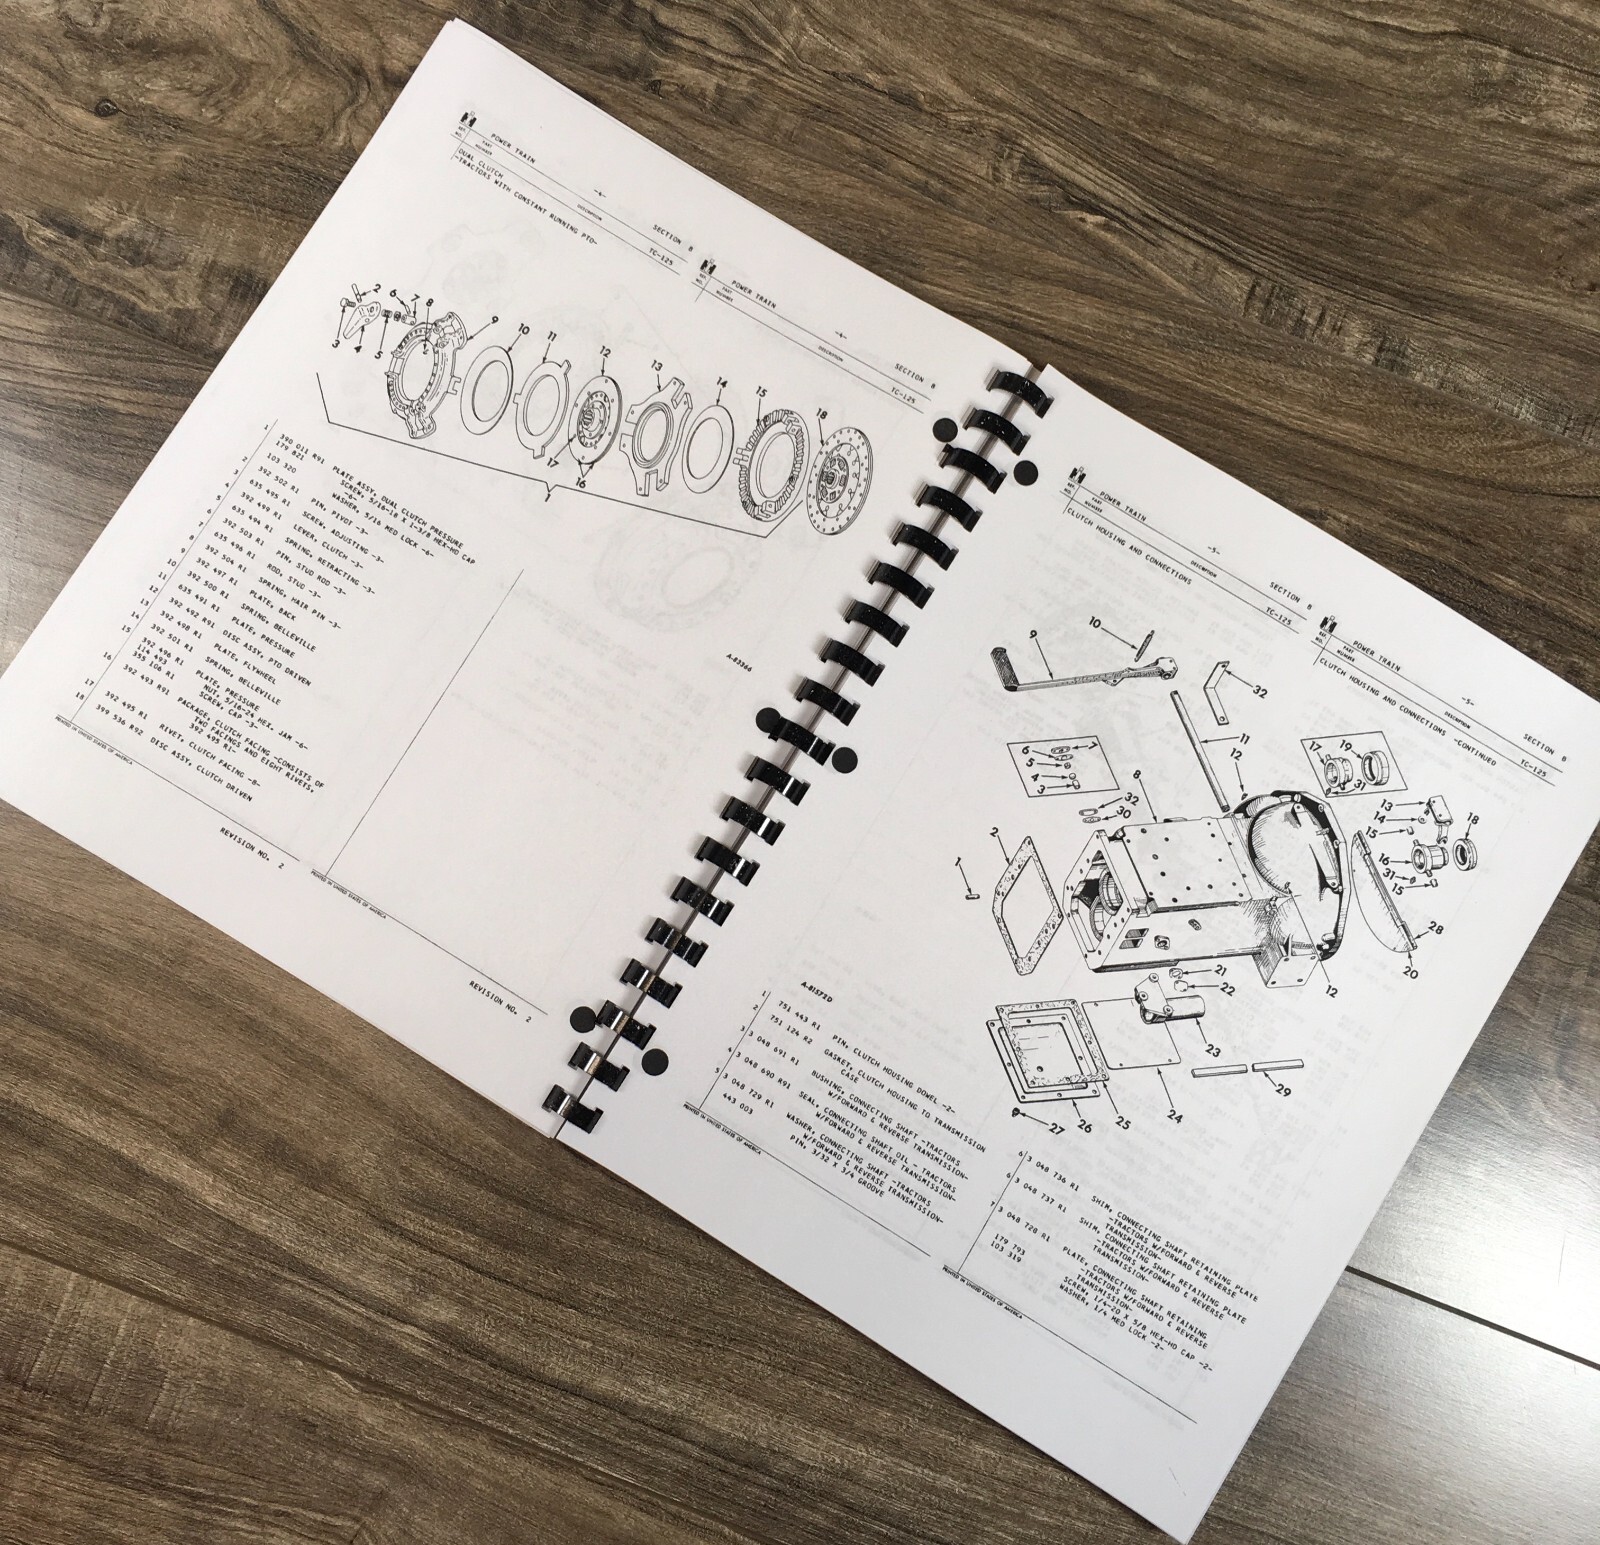 IH
POWER TRAIN
-4-
SECTION 8
REF. NO.
PART NUMBER
DESCRIPTION
TC-125
DUAL CLUTCH
-TRACTORS WITH CONSTANT RUNNING PTO-
2
6
7
8
9
10
11
12
13
14
15
18
3
4
5
17
16
1
1 390 011 R91 PLATE ASSY, DUAL CLUTCH PRESSURE
179 821 SCREW, 5/16-18 X 1-3/8 HEX-HD CAP
-6-
103 320 WASHER, 5/16 MED LOCK -6-
2 392 502 R1 PIN, PIVOT -3-
3 635 495 R1 SCREW, ADJUSTING -3-
4 392 499 R1 LEVER, CLUTCH -3-
5 635 494 R1 SPRING, RETRACTING -3-
6 392 503 R1 PIN, STUD ROD -3-
7 392 504 R1 ROD, STUD -3-
8 635 496 R1 SPRING, HAIR PIN -3-
9 392 497 R1 PLATE, BACK
10 392 500 R1 SPRING, BELLEVILLE
11 635 491 R1 PLATE, PRESSURE
12 392 492 R91 DISC ASSY, PTO DRIVEN
13 392 498 R1 PLATE, FLYWHEEL
14 392 501 R1 SPRING, BELLEVILLE
15 392 496 R1 PLATE, PRESSURE
114 493 NUT, 5/16-24 HEX. JAM -6-
355 106 R1 SCREW, CAP -3-
16 392 493 R91 PACKAGE, CLUTCH FACING -CONSISTS OF
TWO FACINGS AND EIGHT RIVETS,
392 495 R1-
17 392 495 R1 RIVET, CLUTCH FACING -8-
18 399 536 R92 DISC ASSY, CLUTCH DRIVEN
PRINTED IN UNITED STATES OF AMERICA
REVISION NO. 2
IH
POWER TRAIN
-4-
SECTION 8
REF. NO.
PART NUMBER
DESCRIPTION
TC-125
A-82366
PRINTED IN UNITED STATES OF AMERICA
REVISION NO. 2
IH
POWER TRAIN
-5-
SECTION 8
REF. NO.
PART NUMBER
DESCRIPTION
TC-125
CLUTCH HOUSING AND CONNECTIONS
IH
POWER TRAIN
-5-
SECTION 8
REF. NO.
PART NUMBER
DESCRIPTION
TC-125
CLUTCH HOUSING AND CONNECTIONS -CONTINUED
9
10
32
11
12
17
19
31
6
7
5
4
3
8
32
30
13
14
15
18
16
31
15
2
1
28
20
12
21
22
23
29
24
25
26
27
A-81572D
1 751 443 R1 PIN, CLUTCH HOUSING DOWEL -2-
2 751 124 R2 GASKET, CLUTCH HOUSING TO TRANSMISSION
CASE
3 3 048 691 R1 BUSHING, CONNECTING SHAFT -TRACTORS
W/FORWARD & REVERSE TRANSMISSION-
4 3 048 690 R91 SEAL, CONNECTING SHAFT OIL - TRACTORS
W/FORWARD & REVERSE TRANSMISSION-
5 3 048 729 R1 WASHER, CONNECTING SHAFT -TRACTORS
W/FORWARD & REVERSE TRANSMISSION-
443 003 PIN, 3/32 X 3/4 GROOVE
PRINTED IN UNITED STATES OF AMERICA
6 3 048 736 R1 SHIM, CONNECTING SHAFT RETAINING PLATE
-TRACTORS W/FORWARD & REVERSE
TRANSMISSION-
6 3 048 737 R1 SHIM, CONNECTING SHAFT RETAINING PLATE
-TRACTORS W/FORWARD & REVERSE
TRANSMISSION-
7 3 048 728 R1 PLATE, CONNECTING SHAFT RETAINING
-TRACTORS W/FORWARD & REVERSE
TRANSMISSION-
179 793 SCREW, 1/4-20 X 5/8 HEX-HD CAP -2-
103 319 WASHER, 1/4 MED LOCK -2-
PRINTED IN UNITED STATES OF AMERICA